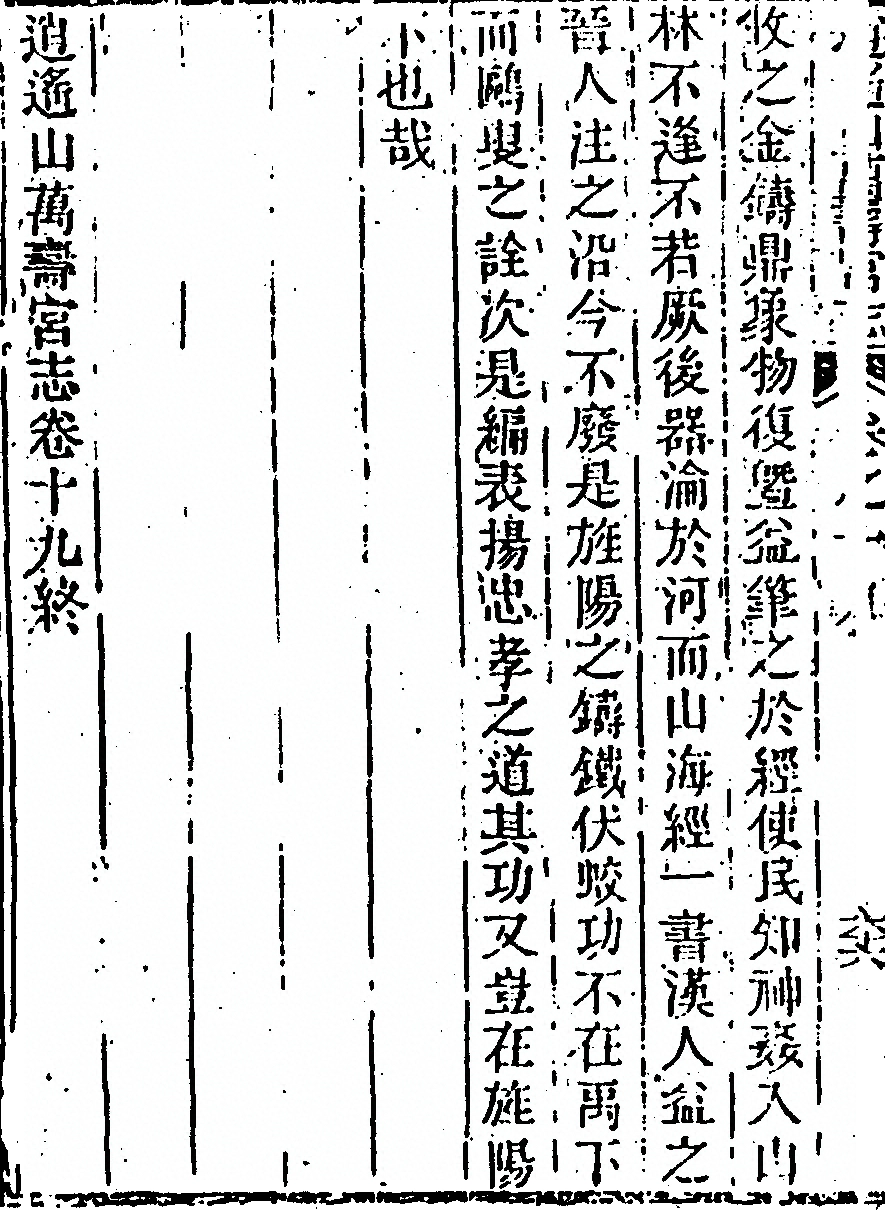 牧之金鑄鼎象物復曁益筆之於經使民知神姦入山
林不逢不若厥後器淪於河而山海經一書漢人益之
晉人注之沿今不廢是旌陽之鑄鐵伏蛟功不在禹下
而鷗叟之詮次是編表揚忠孝之道其功又豈在旌陽
下也哉
逍遙山萬壽宮志卷十九終